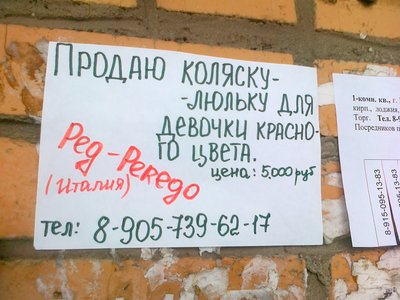 Продаю коляску-
-люльку для
девочки красно-
го цвета.
Рег-Рекедо
(Италия)
цена: 5,000 руб
тел: 8-905-739-62-17
1-комн. кв., г.
кирп., лоджия,
Торг. Тел. 8-9
Посредников п
8-915-095-13-83
095-13-83